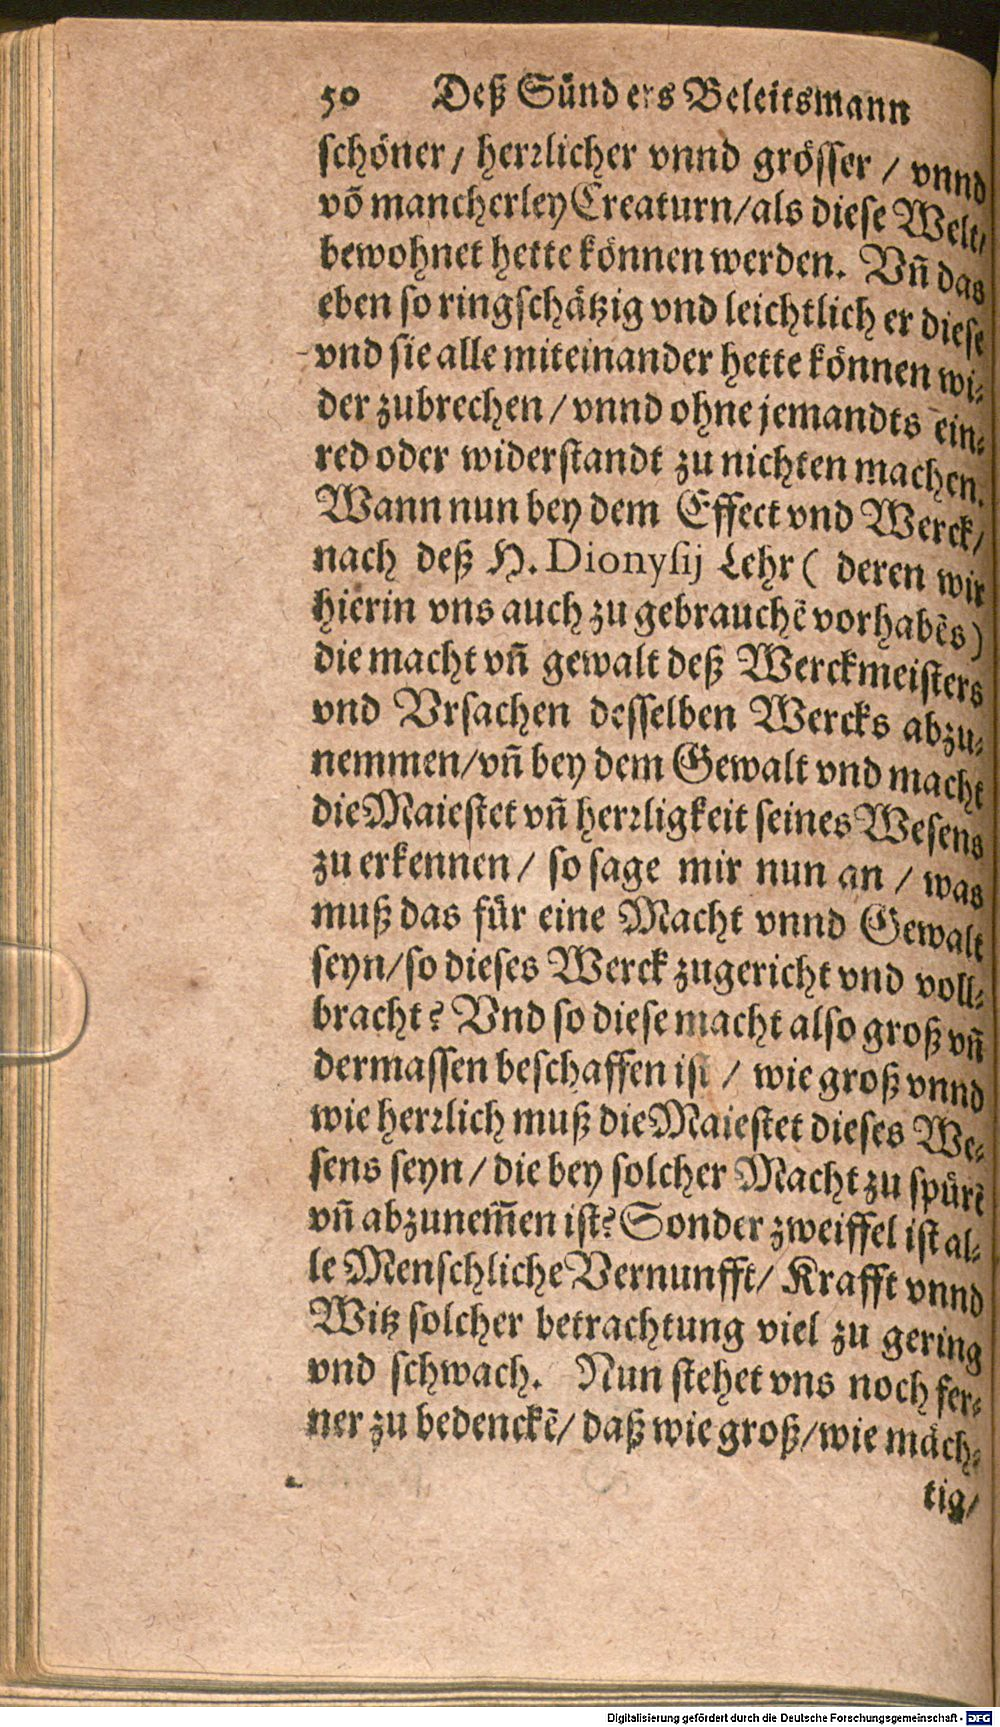 50 Deß Sünders Beleitsmann
schöner / herrlicher vnnd grösser / vnnd
võ mancherley Creaturn/als diese Welt/
bewohnet hette können werden. Vñ das
eben so ringschätzig vnd leichtlich er diese
vnd sie alle miteinander hette können wi-
der zubrechen / vnnd ohne jemandts ein-
red oder widerstandt zu nichten machen.
Wann nun bey dem Effect vnd Werck/
nach deß H. Dionysij Lehr ( deren wir
hierin vns auch zu gebrauchẽ vorhabẽs)
die macht vñ gewalt deß Werckmeisters
vnd Vrsachen desselben Wercks abzu-
nemmen/vñ bey dem Gewalt vnd macht
die Maiestet vñ herrligkeit seines Wesens
zu erkennen / so sage mir nun an / was
muß das für eine Macht vnnd Gewalt
seyn/so dieses Werck zugericht vnd voll-
bracht? Vnd so diese macht also groß vñ
dermassen beschaffen ist / wie groß vnnd
wie herrlich muß die Maiestet dieses We-
sens seyn / die bey solcher Macht zu spürẽ
vñ abzunem̃en ist? Sonder zweiffel ist al-
le Menschliche Vernunfft/ Krafft vnnd
Witz solcher betrachtung viel zu gering
vnd schwach. Nun stehet vns noch fer-
ner zu bedenckẽ/ daß wie groß/wie mäch-
tig/
Digitalisierung gefördert durch die Deutsche Forschungsgemeinschaft - DFG